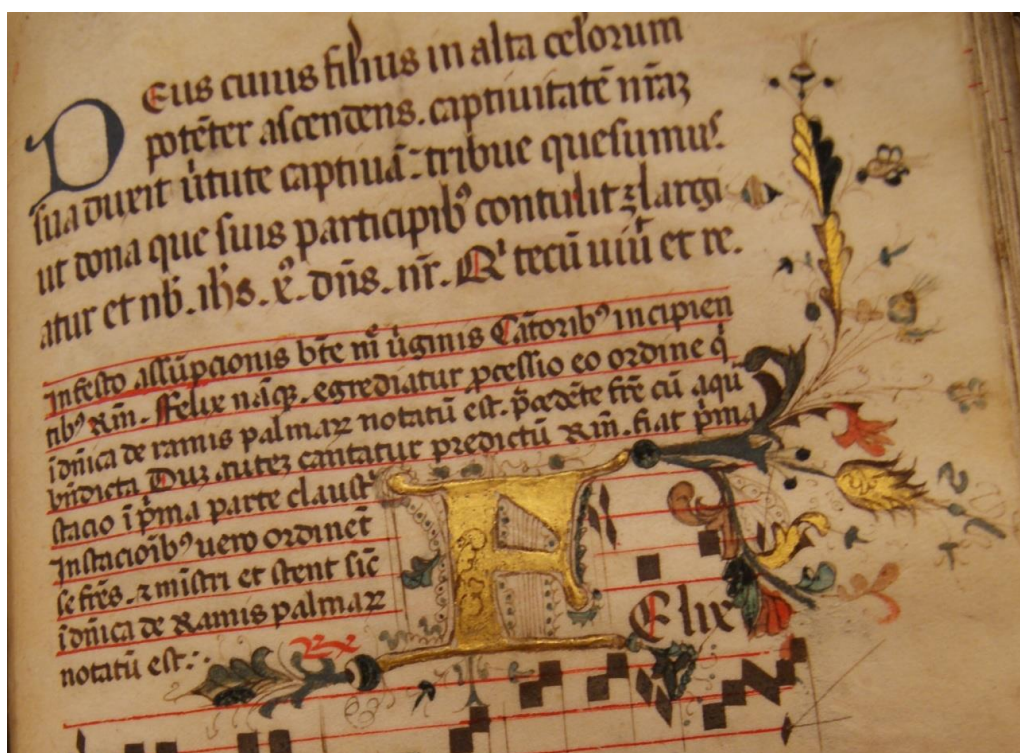 DEus cuius filius in alta celorum
potēter ascendens. captiuitatē nr̄aꝫ
sua duxit ūtute captiuā: tribue quesumus.
ut dona que suis participibꝰ contulit ꝛ largi
atur et nb̄. ih̄s. xͤ. dn̄s. nr̄. Qͥ tecū uiuit et re.
In festo assūpcionis btē mͤ ūginis Cātoribꝰ incipien
tibꝰ Rm̄. Felix nāqꝫ. egrediatur ꝓcessio eo ordine qͥ
ī dn̄ica de ramis palmaꝝ notatū est. p̄cedēte frē cū aqua
bn̄dicta Duꝫ auteꝫ cantatur predictū Rm̄. fiat p̄ma
stacio ī p̄ma parte claustͥ
In stacōibꝰ uero ordinēt
se frēs. ꝛ mīstri et stent sic̄
ī dn̄ica de Ramis palmaꝝ
notatū est:
Rx
FElix